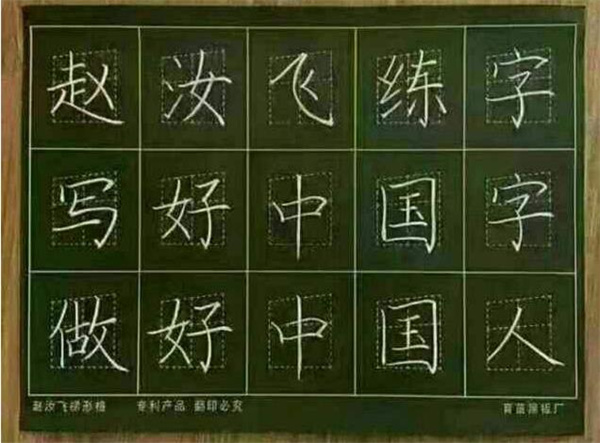 赵汝飞练字
写好中国字
做好中国人
赵汝飞梯形格 专利产品 翻印必究 育苗黑板厂